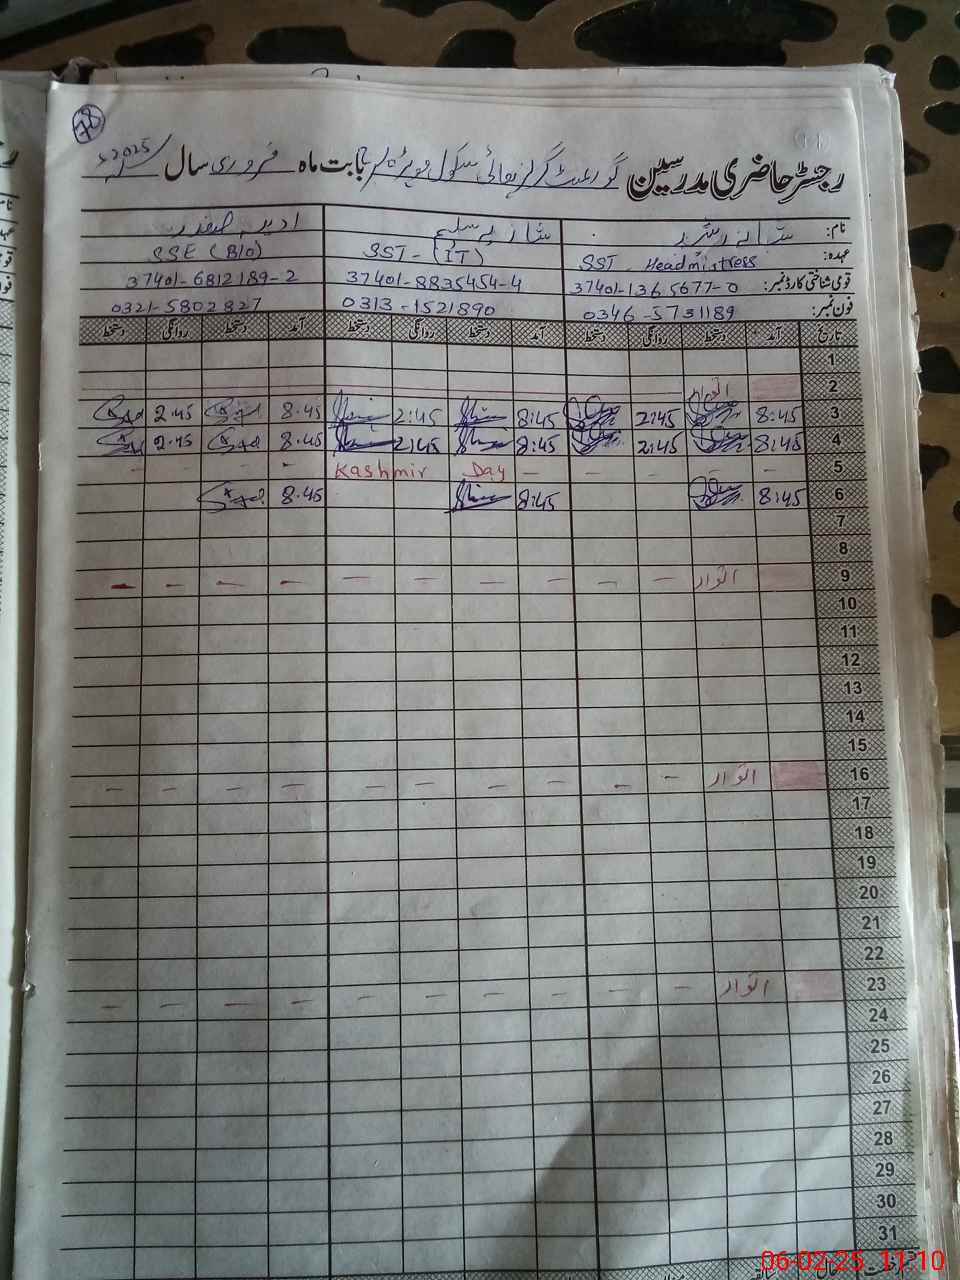 78
رجسٹر حاضری مدرسین گورنمنٹ گرلز ہائی سکول بابت ماہ فروری سال 2025ء
نام: شبانہ رشید شازیہ سلیم ادیبہ صفدر
عہدہ: SST Headmistress SST-(IT) SSE (Bio)
قومی شناختی کارڈ نمبر: 37401-1365677-0 37401-8835454-4 37401-6812189-2
فون نمبر: 0346-5731189 0313-1521890 0321-5802827
تاریخ آمد دستخط روانگی دستخط آمد دستخط روانگی دستخط آمد دستخط روانگی دستخط
1
2 اتوار
3 8:45 2:45 8:45 2:45 8.45 2.45
4 8:45 2:45 8:45 2:45 8.45 2.45
5 - - - - - Kashmir Day - - - -
6 8:45 8:45 8.45
7
8
9 اتوار - - - - - - - - - -
10
11
12
13
14
15
16 اتوار - - - - - - - - - -
17
18
19
20
21
22
23 اتوار - - - - - - - - - -
24
25
26
27
28
29
30
31
06-02-25 11:10